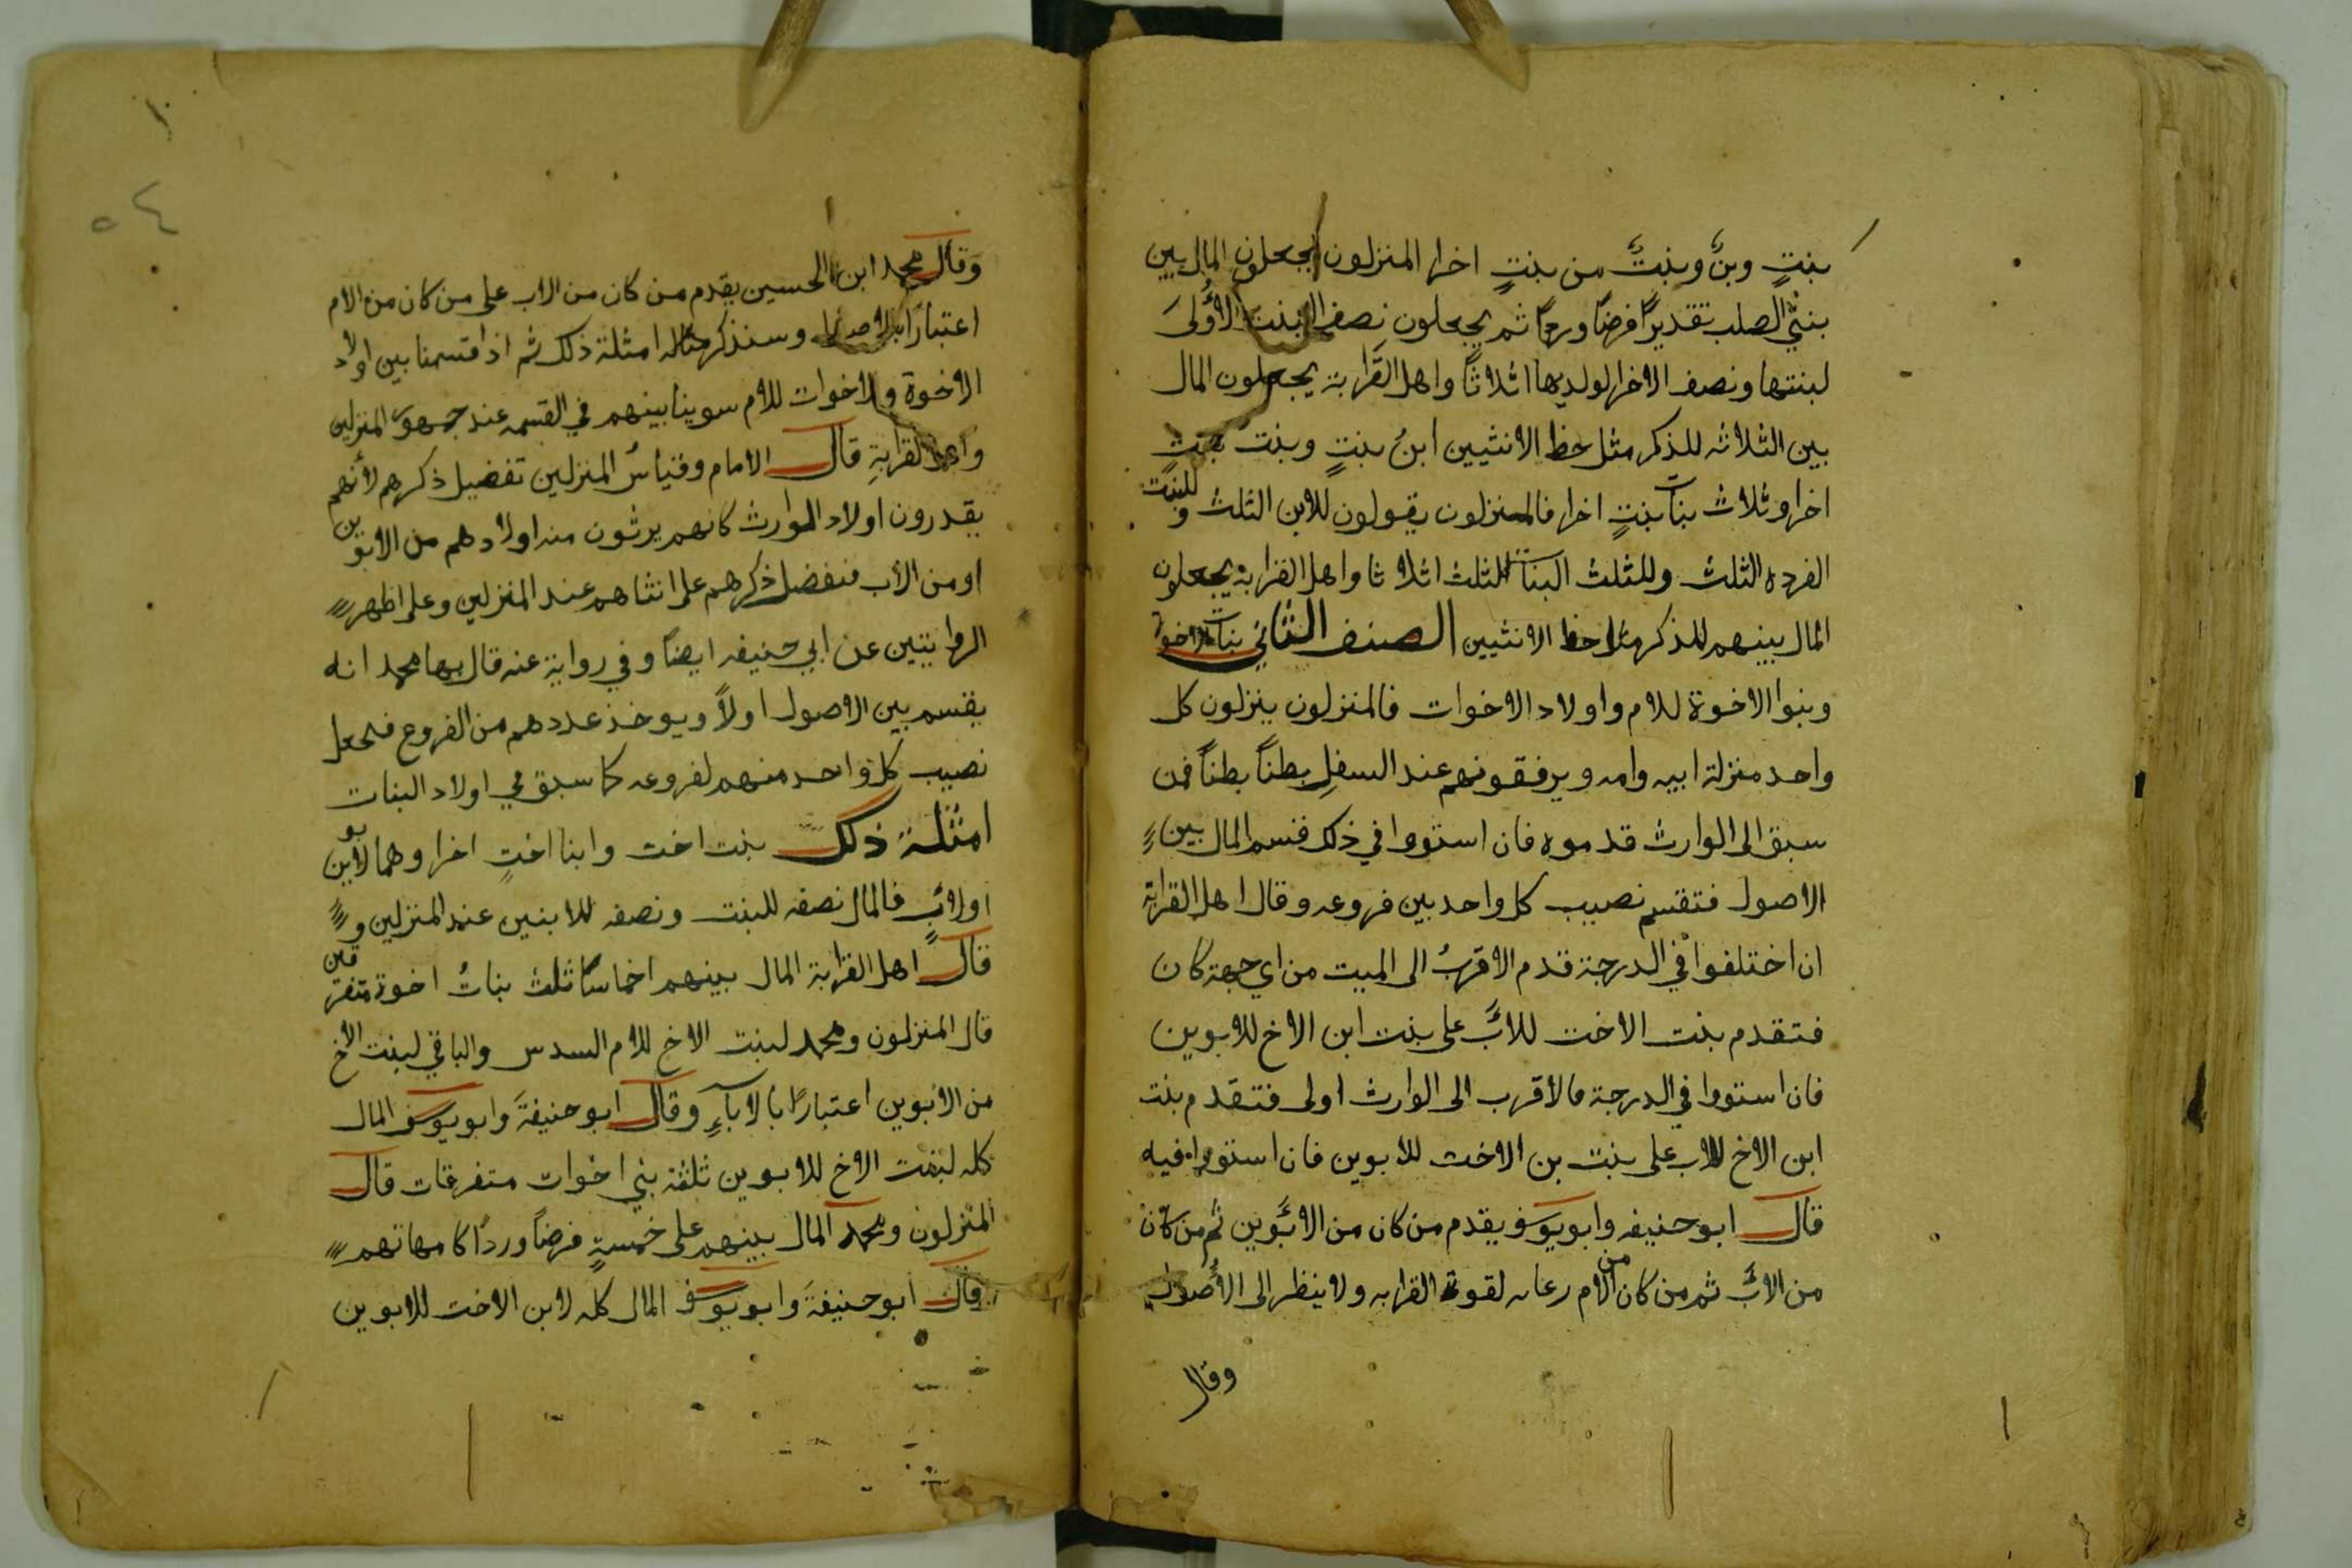 بنتٍ وبنٌ وبنتٌ من بنتٍ اخرا المنزلون يجعلون المال بين
بنتي الصلب تقديرًا فرضًا وردًا ثم يجعلون نصف البنت الأولى
لبنتها ونصف الاخرا لولديها اثلاثًا واهل القرابة يجعلون المال
بين الثلاثه للذكر مثل حظ الانثيين ابن بنتٍ وبنت بنتٍ
اخرا وثلاث بنات بنتٍ اخرا فالمنزلون يقولون للابن الثلث وللبنت
الفرده الثلث وللثلث البنات الثلث اثلاثا واهل القرابة يجعلون
المال بينهم للذكر مثل حظ الانثيين الصنف الثاني بنات الاخوة
وبنوا الاخوة للام واولاد الاخوات فالمنزلون ينزلون كل
واحد منزلة ابيه وامه ويرفقونهم عند السفلِ بطنًا بطنًا فمن
سبق الى الوارث قدموه فان استووا في ذلك قسم المال بين
الاصول فتقسم نصيب كل واحد بين فروعه وقال اهل القرابة
ان اختلفوا في الدرجة قدم الاقربُ الى الميت من اي جهة كان
فتقدم بنت الاخت للابَّ على بنت ابن الاخ للابوين
فان استووا في الدرجة فالاقرب الى الوارث اولى فتقدم بنت
ابن الاخ للاب على بنت بن الاخت للابوين فان استووا فيه
قال ابو حنيفه وابو يوسف يقدم من كان من الابَوين ثم من كان
من الابَّ ثم من كان من الام رعايه لقوة القرابه ولا ينظر الى الأصول
وقال
٥٤
وقال محمد ابن الحسين يقدم من كان من الاب على من كان من الام
اعتبارًا بالاصول وسنذكر مثاله امثلة ذلك ثم اذا قسمنا بين اولاد
الاخوة والاخوات للام سوينا بينهم في القسمه عند جمهور المنزلين
واهل القرابةِ قال الامام وقياسُ المنزلين تفضيل ذكرهم لأنهم
يقدرون اولاد الوارث كانهم يرثون منه اولادهم من الابوين
او من الاب فنفضل ذكرهم على انثاهم عند المنزلين وعلى اظهر
الروايتين عن ابي حنيفه ايضًا وفي رواية عنه قال بها محمد انه
يقسم بين الاصول اولاً ويوخذ عددهم من الفروع فيجعل
نصيب كل واحد منهم لفروعه كما سبق في اولاد البنات
امثلة ذلك بنت اخت وابنا اختٍ اخرا وهما لابوين
اولابٍ فالمال نصفه للبنت ونصفه للابنين عند المنزلين و
قال اهل القرابة المال بينهم اخماسًا ثلث بناتُ اخوة متفرقين
قال المنزلون ومحمد لبنت الاخ للام السدس والباقي لبنت الاخ
من الابوين اعتبارًا بالاباَءِ وقال ابو حنيفةَ وابو يوسف المال
كله لبنت الاخ للابوين ثلثة بني اخوات متفرقات قال
المنزلون ومحمد المال بينهم على خمسةٍ فرضًا وردًا كامهاتهم
وقال ابو حنيفةَ وابو يوسف المال كله لابن الاخت للابوين